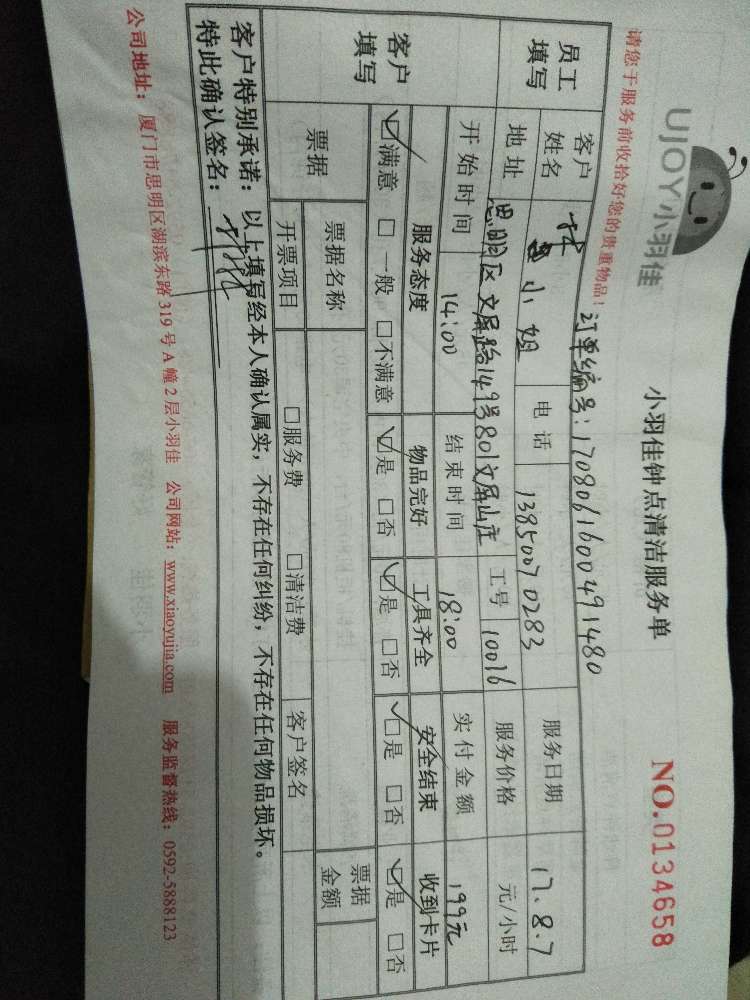 UJOY小羽佳
小羽佳钟点清洁服务单
NO.0134658
请您于服务前收拾好您的贵重物品！
订单编号：1708061600491480
员工填写 客户姓名 林小姐 电话 13850070283 服务日期 17.8.7
地址 思明区文屏路149号801文屏山庄 工号 10016 服务价格 元/小时
开始时间 14:00 结束时间 18:00 实付金额 199元
客户填写 服务态度 物品完好 工具齐全 安全结束 收到卡片
☑满意 □一般 □不满意 ☑是 □否 ☑是 □否 ☑是 □否 ☑是 □否
票据 票据名称 票据金额
开票项目 □服务费 □清洁费 客户签名
客户特别承诺：以上填写经本人确认属实，不存在任何纠纷，不存在任何物品损坏。
特此确认签名：
公司地址：厦门市思明区湖滨东路319号A幢2层小羽佳 公司网站：www.xiaoyujia.com 服务监督热线：0592-5888123